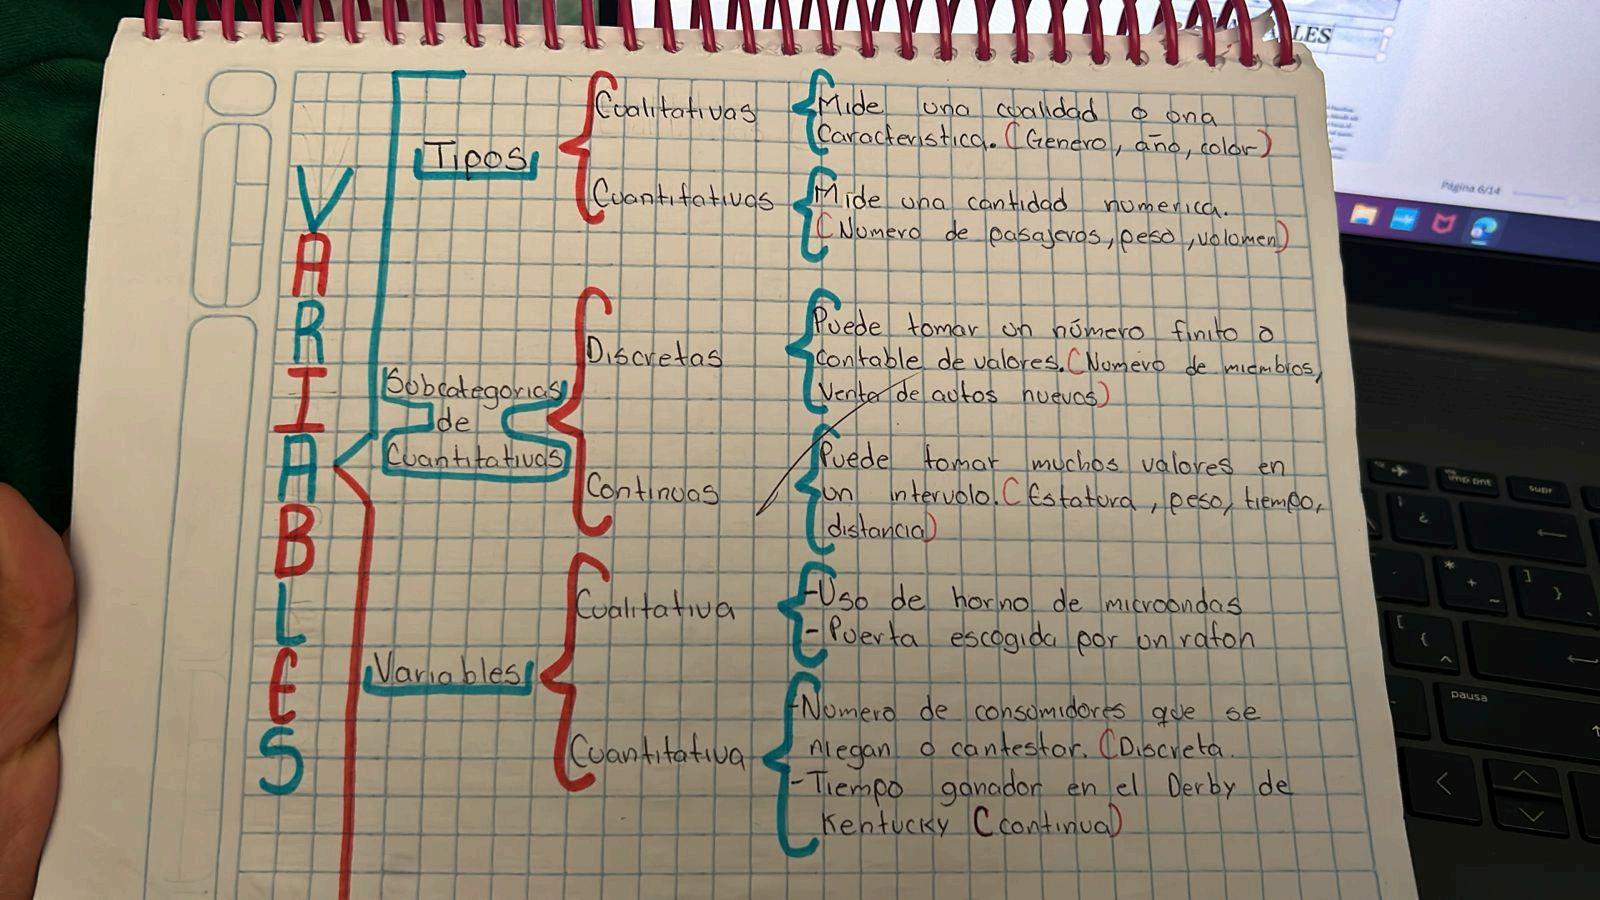 VARIABLES
Tipos
Cualitativas
Mide una cualidad o una
Caracteristica. (Genero, año, color)
Cuantitativas
Mide una cantidad numerica.
(Numero de pasajeros, peso, volumen)
Subcategorias
de
Cuantitativas
Discretas
Puede tomar un número finito o
contable de valores. (Numero de miembros,
Venta de autos nuevos)
Continuas
Puede tomar muchos valores en
un intervalo. (Estatura, peso, tiempo,
distancia)
Variables
Cualitativa
-Uso de horno de microondas
-Puerta escogida por un raton
Cuantitativa
-Numero de consumidores que se
niegan a contestar. (Discreta.
-Tiempo ganador en el Derby de
Kentucky (continua)
LES
Página 6/14
imp pnt
supr
pausa